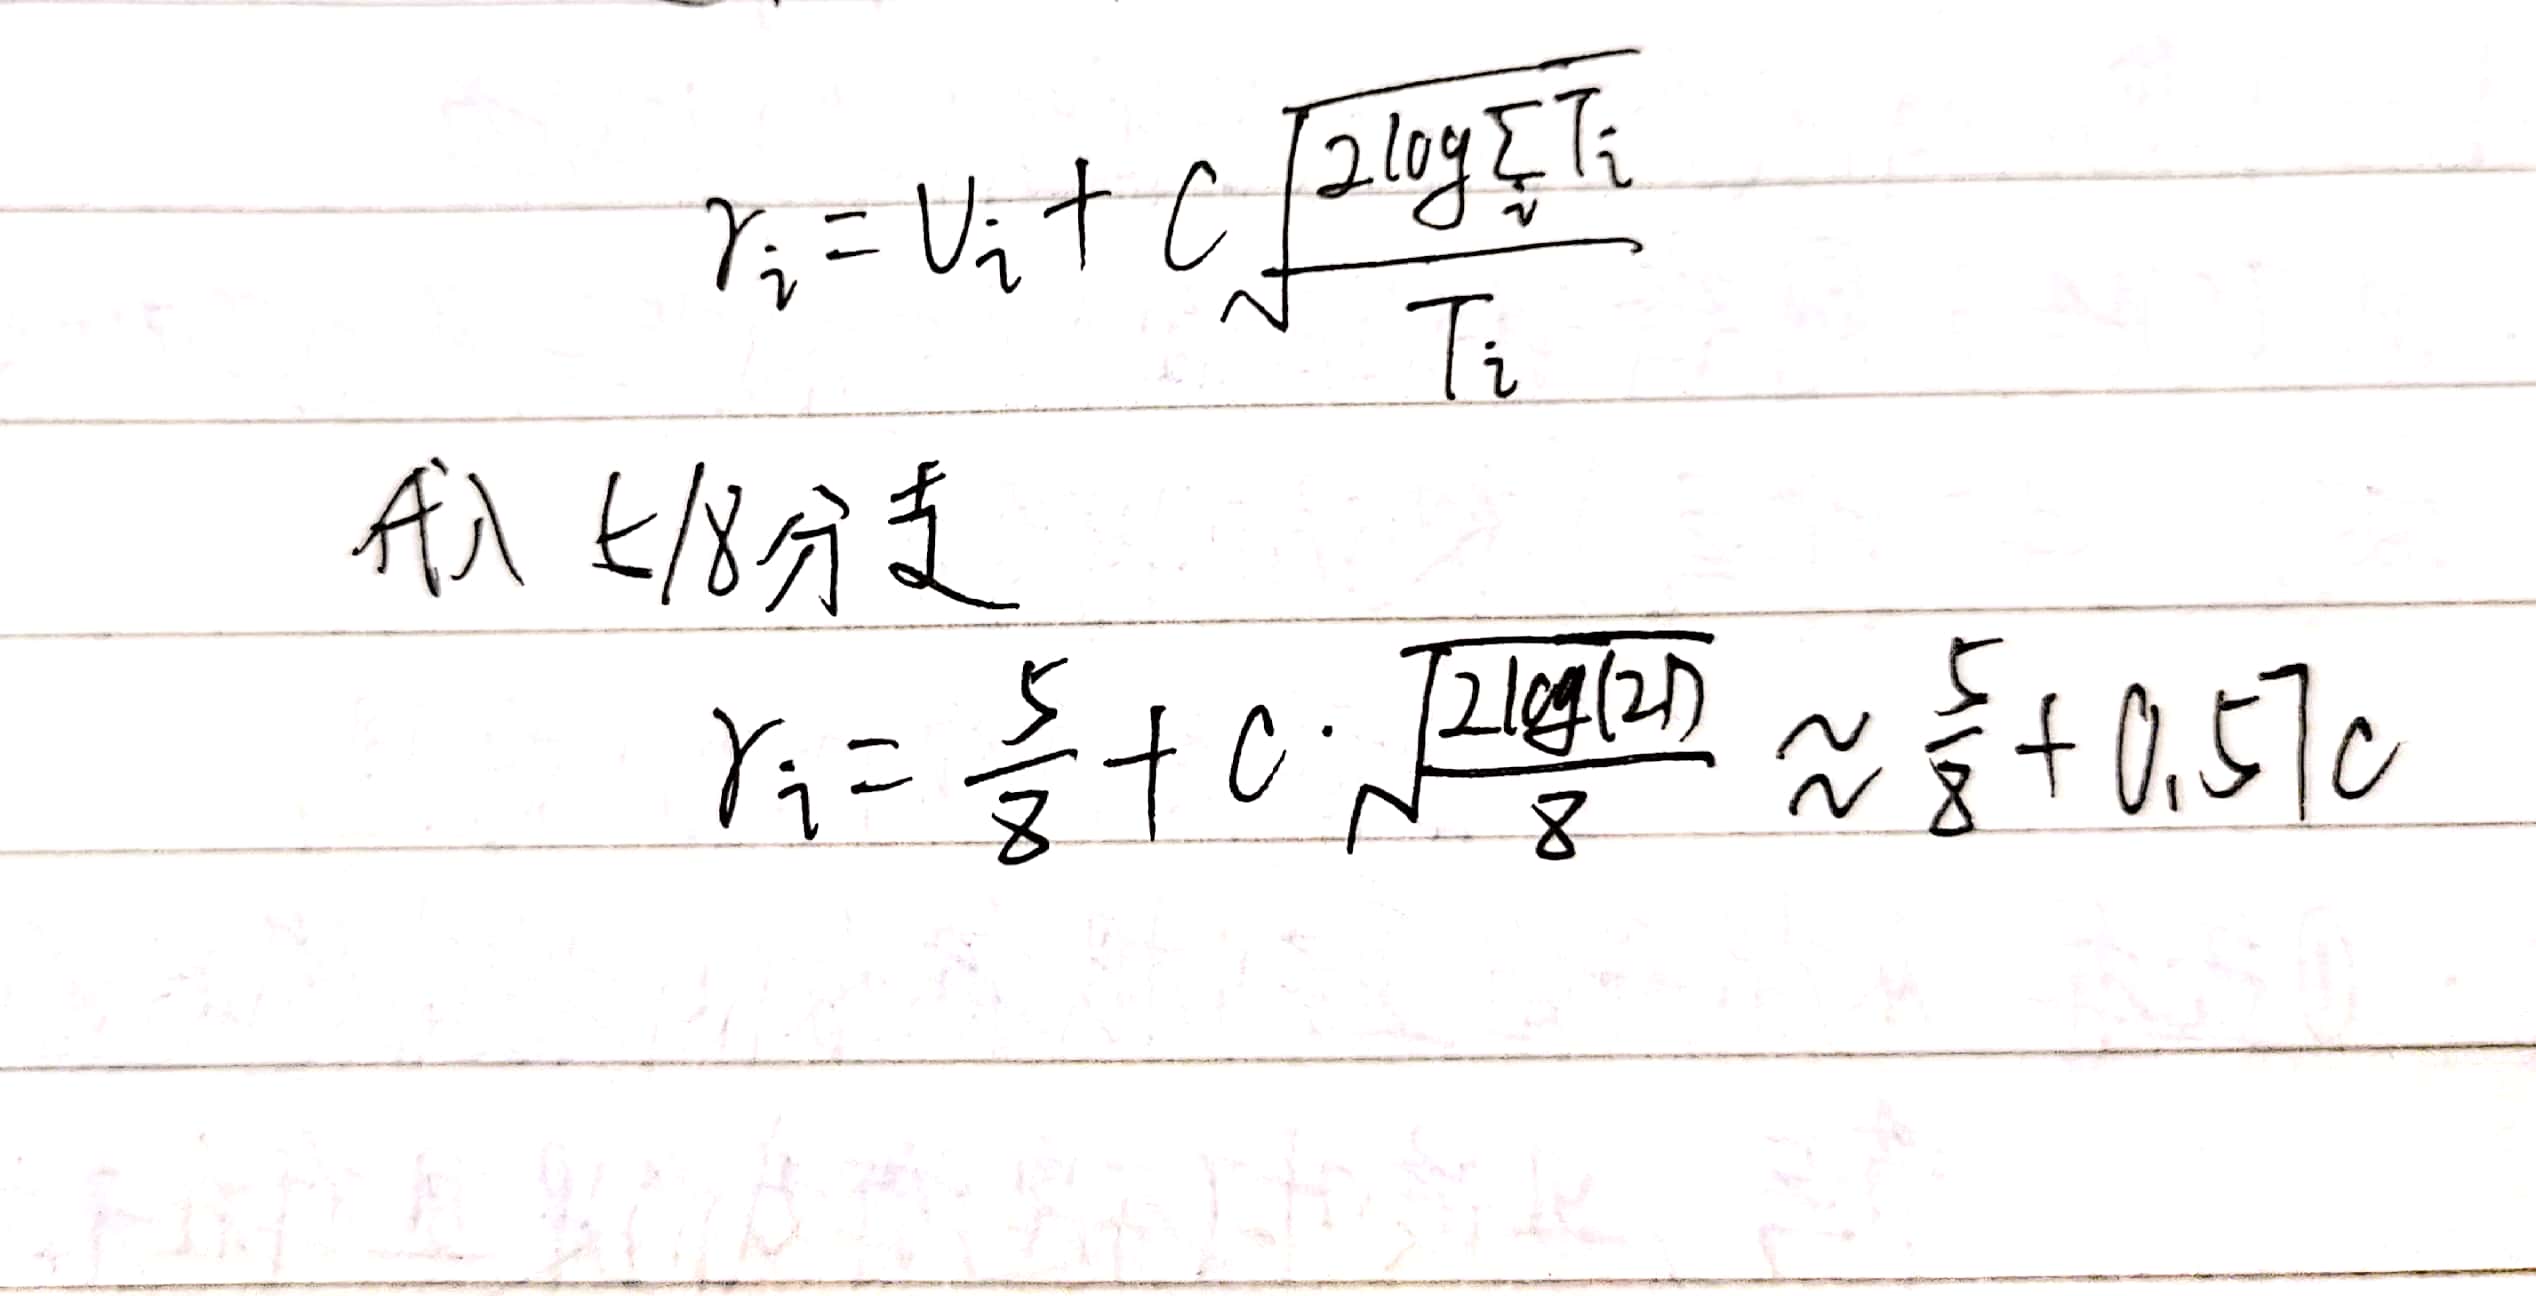 r_i = v_i + C √(2log Σ_i T_i / T_i)
代入 5/8分支
r_i = 5/8 + C · √(2log(21) / 8) ≈ 5/8 + 0.57C